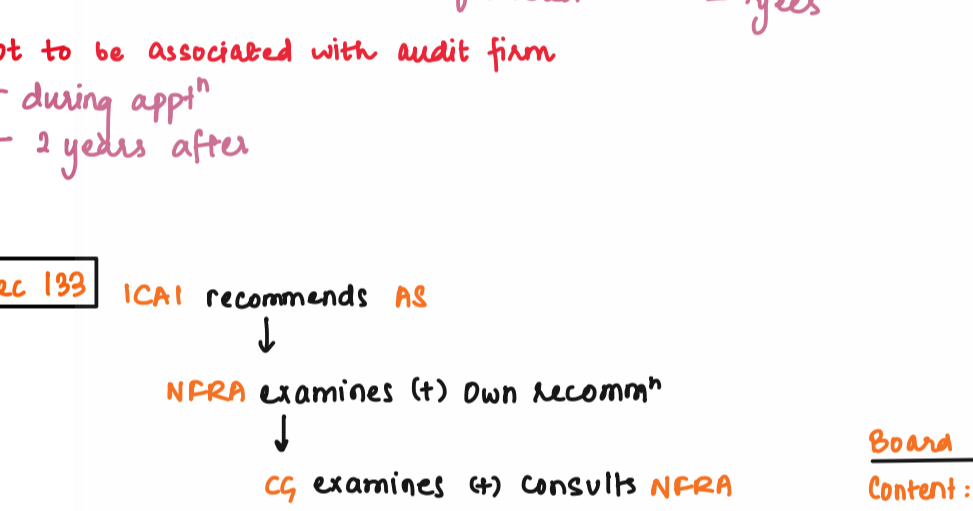 ot to be associated with audit firm
- during apptⁿ
- 2 years after
ec 133
ICAI recommends AS
↓
NFRA examines (+) Own recommⁿ
↓
CG examines (+) consults NFRA
Board
Content: